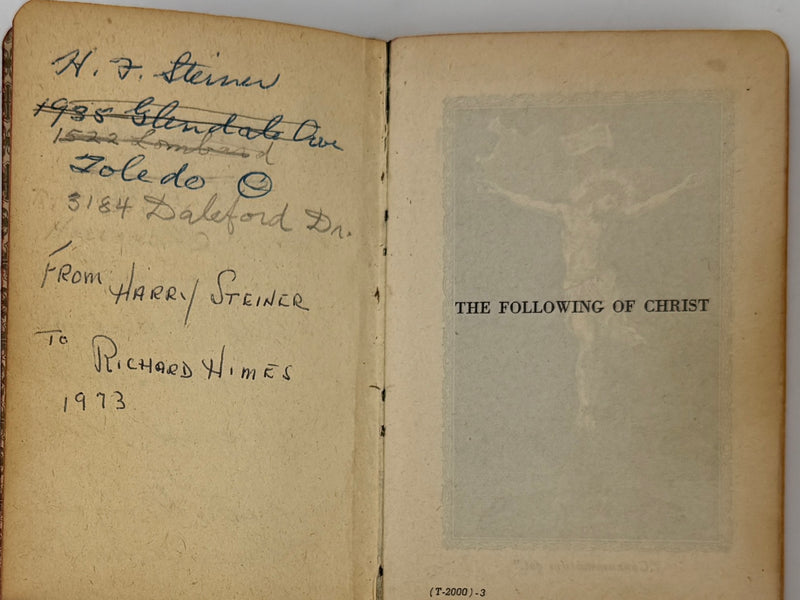 H. F. Steiner
1935 Glendale Ave
1522 Lombard
Toledo
3184 Daleford Dr.
FROM HARRY STEINER
TO
RICHARD HIMES
1973
THE FOLLOWING OF CHRIST
(T-2000)-3